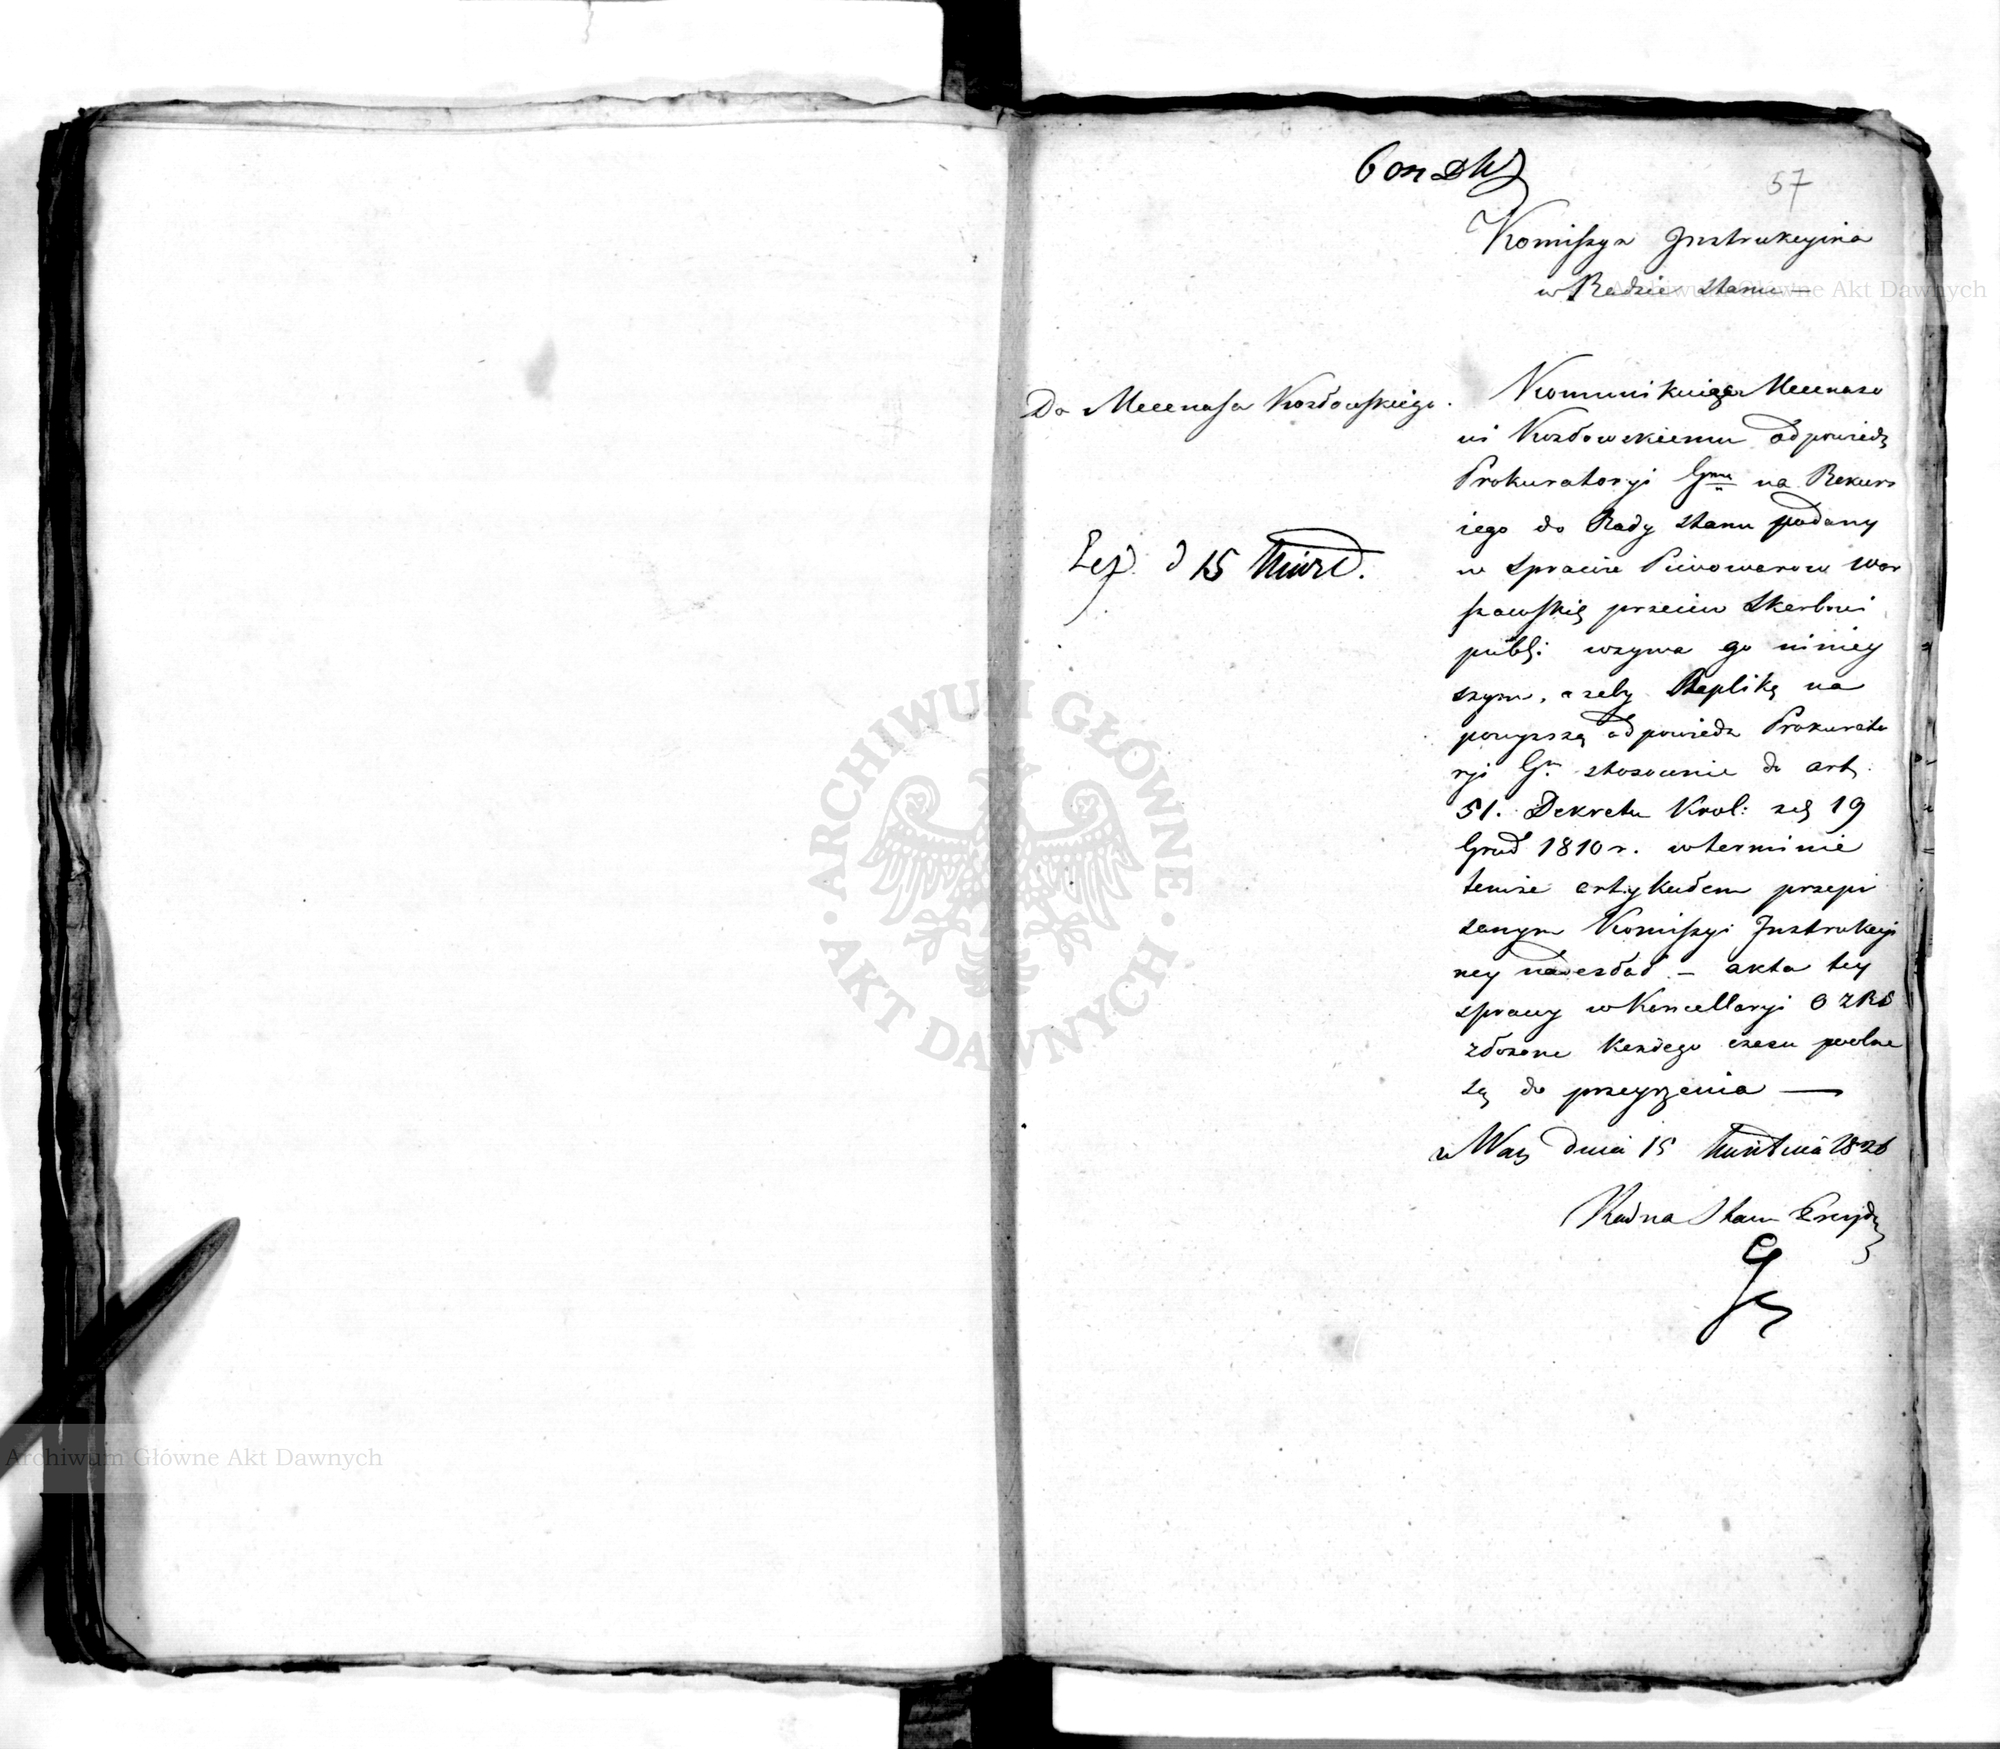 57
Komissya Instrukcyina
w Radzie Stanu —
Do Mecenasa Kozłowskiego.
Exp. d 15 Kwiet.
Kommunikuiąc Mecenaso
wi Kozłowskiemu odpowiedź
Prokuratoryi Gney na Rekurs
iego do Rady Stanu podany
w sprawie Piwowarow War
szawskich przeciw Skarbowi
publ: wzywa go niniey
szym, ażeby Replikę na
powyższą odpowiedz Prokurato
ryi G. stosownie do art.
51. Dekretu Krol: z d 19
Grud 1810 r. w terminie
temże artykułem przepi
sanym Komissyi Instrukcyi
ney nadesłał — akta tey
sprawy w Kancellaryi
złożone każdego czasu wolne
są do przeyrzenia —
w War dnia 15 Kwietnia 1826
Radca Stanu Prezyd
Archiwum Główne Akt Dawnych
ARCHIWUM GŁÓWNE
· AKT DAWNYCH ·
Archiwum Główne Akt Dawnych